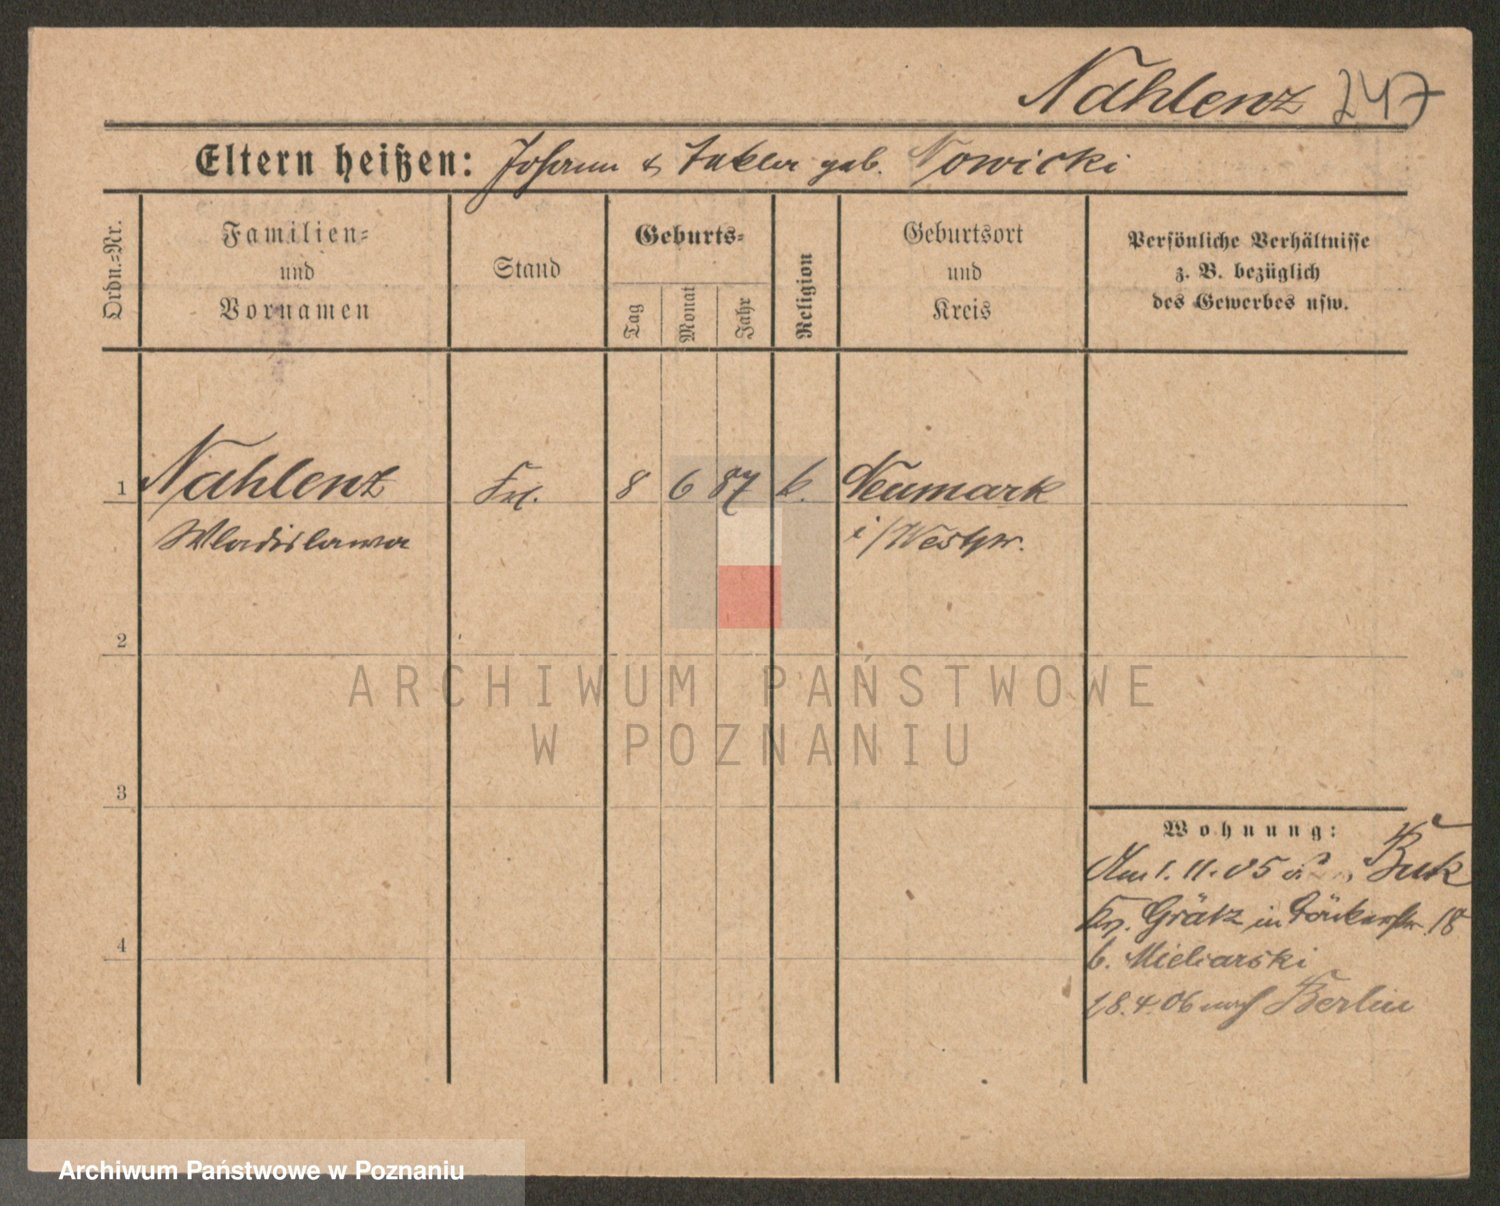 Nahlenz 247
Eltern heißen: Johann & Tekla geb. Nowicki
Ordn.=Nr.
Familien=
und
Vornamen
Stand
Geburts=
Tag
Monat
Jahr
Religion
Geburtsort
und
Kreis
Persönliche Verhältnisse
z. B. bezüglich
des Gewerbes usw.
1 Nahlenz Frl. 8 6 87 k. Neumark
Wladislawa i/Westpr.
2
ARCHIWUM PAŃSTWOWE
W POZNANIU
3
Wohnung:
Am 1.11.05 Buk
Kr. Grätz in 18
b. Mieliarski
18.4.06 nach Berlin
4
Archiwum Państwowe w Poznaniu